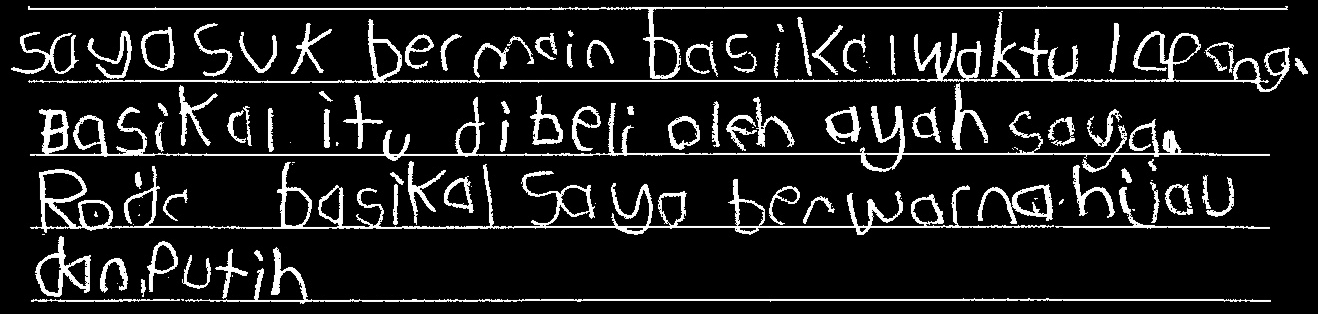 saya suk bermain basikal waktu lapang.
Basikal itu dibeli oleh ayah saya.
Roda basikal saya berwarna hijau
dan putih